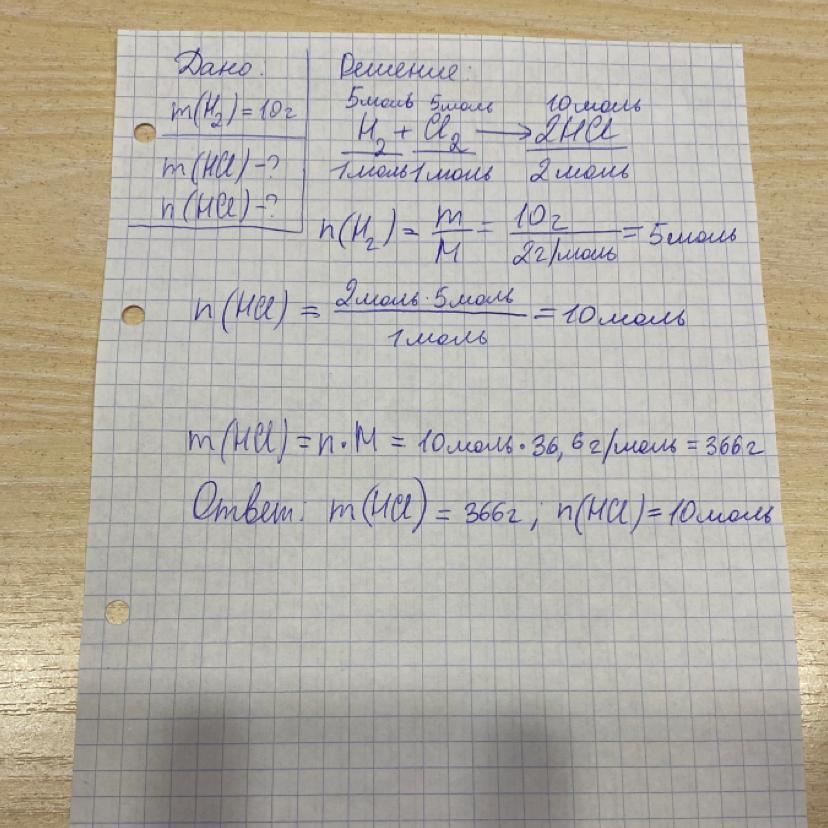 Дано:
m(H₂)=10г
m(HCl)-?
n(HCl)-?
Решение:
5моль 5моль 10моль
H₂ + Cl₂ → 2HCl
1моль 1моль 2моль
n(H₂) = m/M = 10г/2г/моль = 5моль
n(HCl) = 2моль·5моль/1моль = 10моль
m(HCl) = n·M = 10моль·36,6г/моль = 366г
Ответ: m(HCl) = 366г; n(HCl) = 10моль